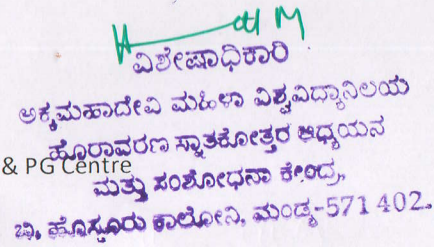 ವಿಶೇಷಾಧಿಕಾರಿ
ಅಕ್ಕಮಹಾದೇವಿ ಮಹಿಳಾ ವಿಶ್ವವಿದ್ಯಾನಿಲಯ
ಹೊರಾವರಣ ಸ್ನಾತಕೋತ್ತರ ಅಧ್ಯಯನ
& PG Centre
ಮತ್ತು ಸಂಶೋಧನಾ ಕೇಂದ್ರ,
ಬಿ. ಹೊಸ್ತೂರು ಕಾಲೋನಿ, ಮಂಡ್ಯ-571 402.